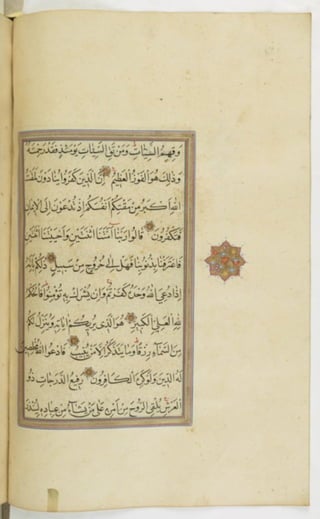 وَقِهِمُ السَّيِّئَاتِ وَمَن تَقِ السَّيِّئَاتِ يَوْمَئِذٍ فَقَدْ رَحِمْتَهُ
وَذَٰلِكَ هُوَ الْفَوْزُ الْعَظِيمُ إِنَّ الَّذِينَ كَفَرُوا يُنَادَوْنَ لَمَقْتُ
اللَّهِ أَكْبَرُ مِن مَّقْتِكُمْ أَنفُسَكُمْ إِذْ تُدْعَوْنَ إِلَى الْإِيمَانِ
فَتَكْفُرُونَ قَالُوا رَبَّنَا أَمَتَّنَا اثْنَتَيْنِ وَأَحْيَيْتَنَا اثْنَتَيْنِ
فَاعْتَرَفْنَا بِذُنُوبِنَا فَهَلْ إِلَىٰ خُرُوجٍ مِّن سَبِيلٍ ذَٰلِكُم بِأَنَّهُ
إِذَا دُعِيَ اللَّهُ وَحْدَهُ كَفَرْتُمْ وَإِن يُشْرَكْ بِهِ تُؤْمِنُوا فَالْحُكْمُ
لِلَّهِ الْعَلِيِّ الْكَبِيرِ هُوَ الَّذِي يُرِيكُمْ آيَاتِهِ وَيُنَزِّلُ لَكُم
مِّنَ السَّمَاءِ رِزْقًا وَمَا يَتَذَكَّرُ إِلَّا مَن يُنِيبُ فَادْعُوا اللَّهَ مُخْلِصِينَ
لَهُ الدِّينَ وَلَوْ كَرِهَ الْكَافِرُونَ رَفِيعُ الدَّرَجَاتِ ذُو
الْعَرْشِ يُلْقِي الرُّوحَ مِنْ أَمْرِهِ عَلَىٰ مَن يَشَاءُ مِنْ عِبَادِهِ لِيُنذِرَ